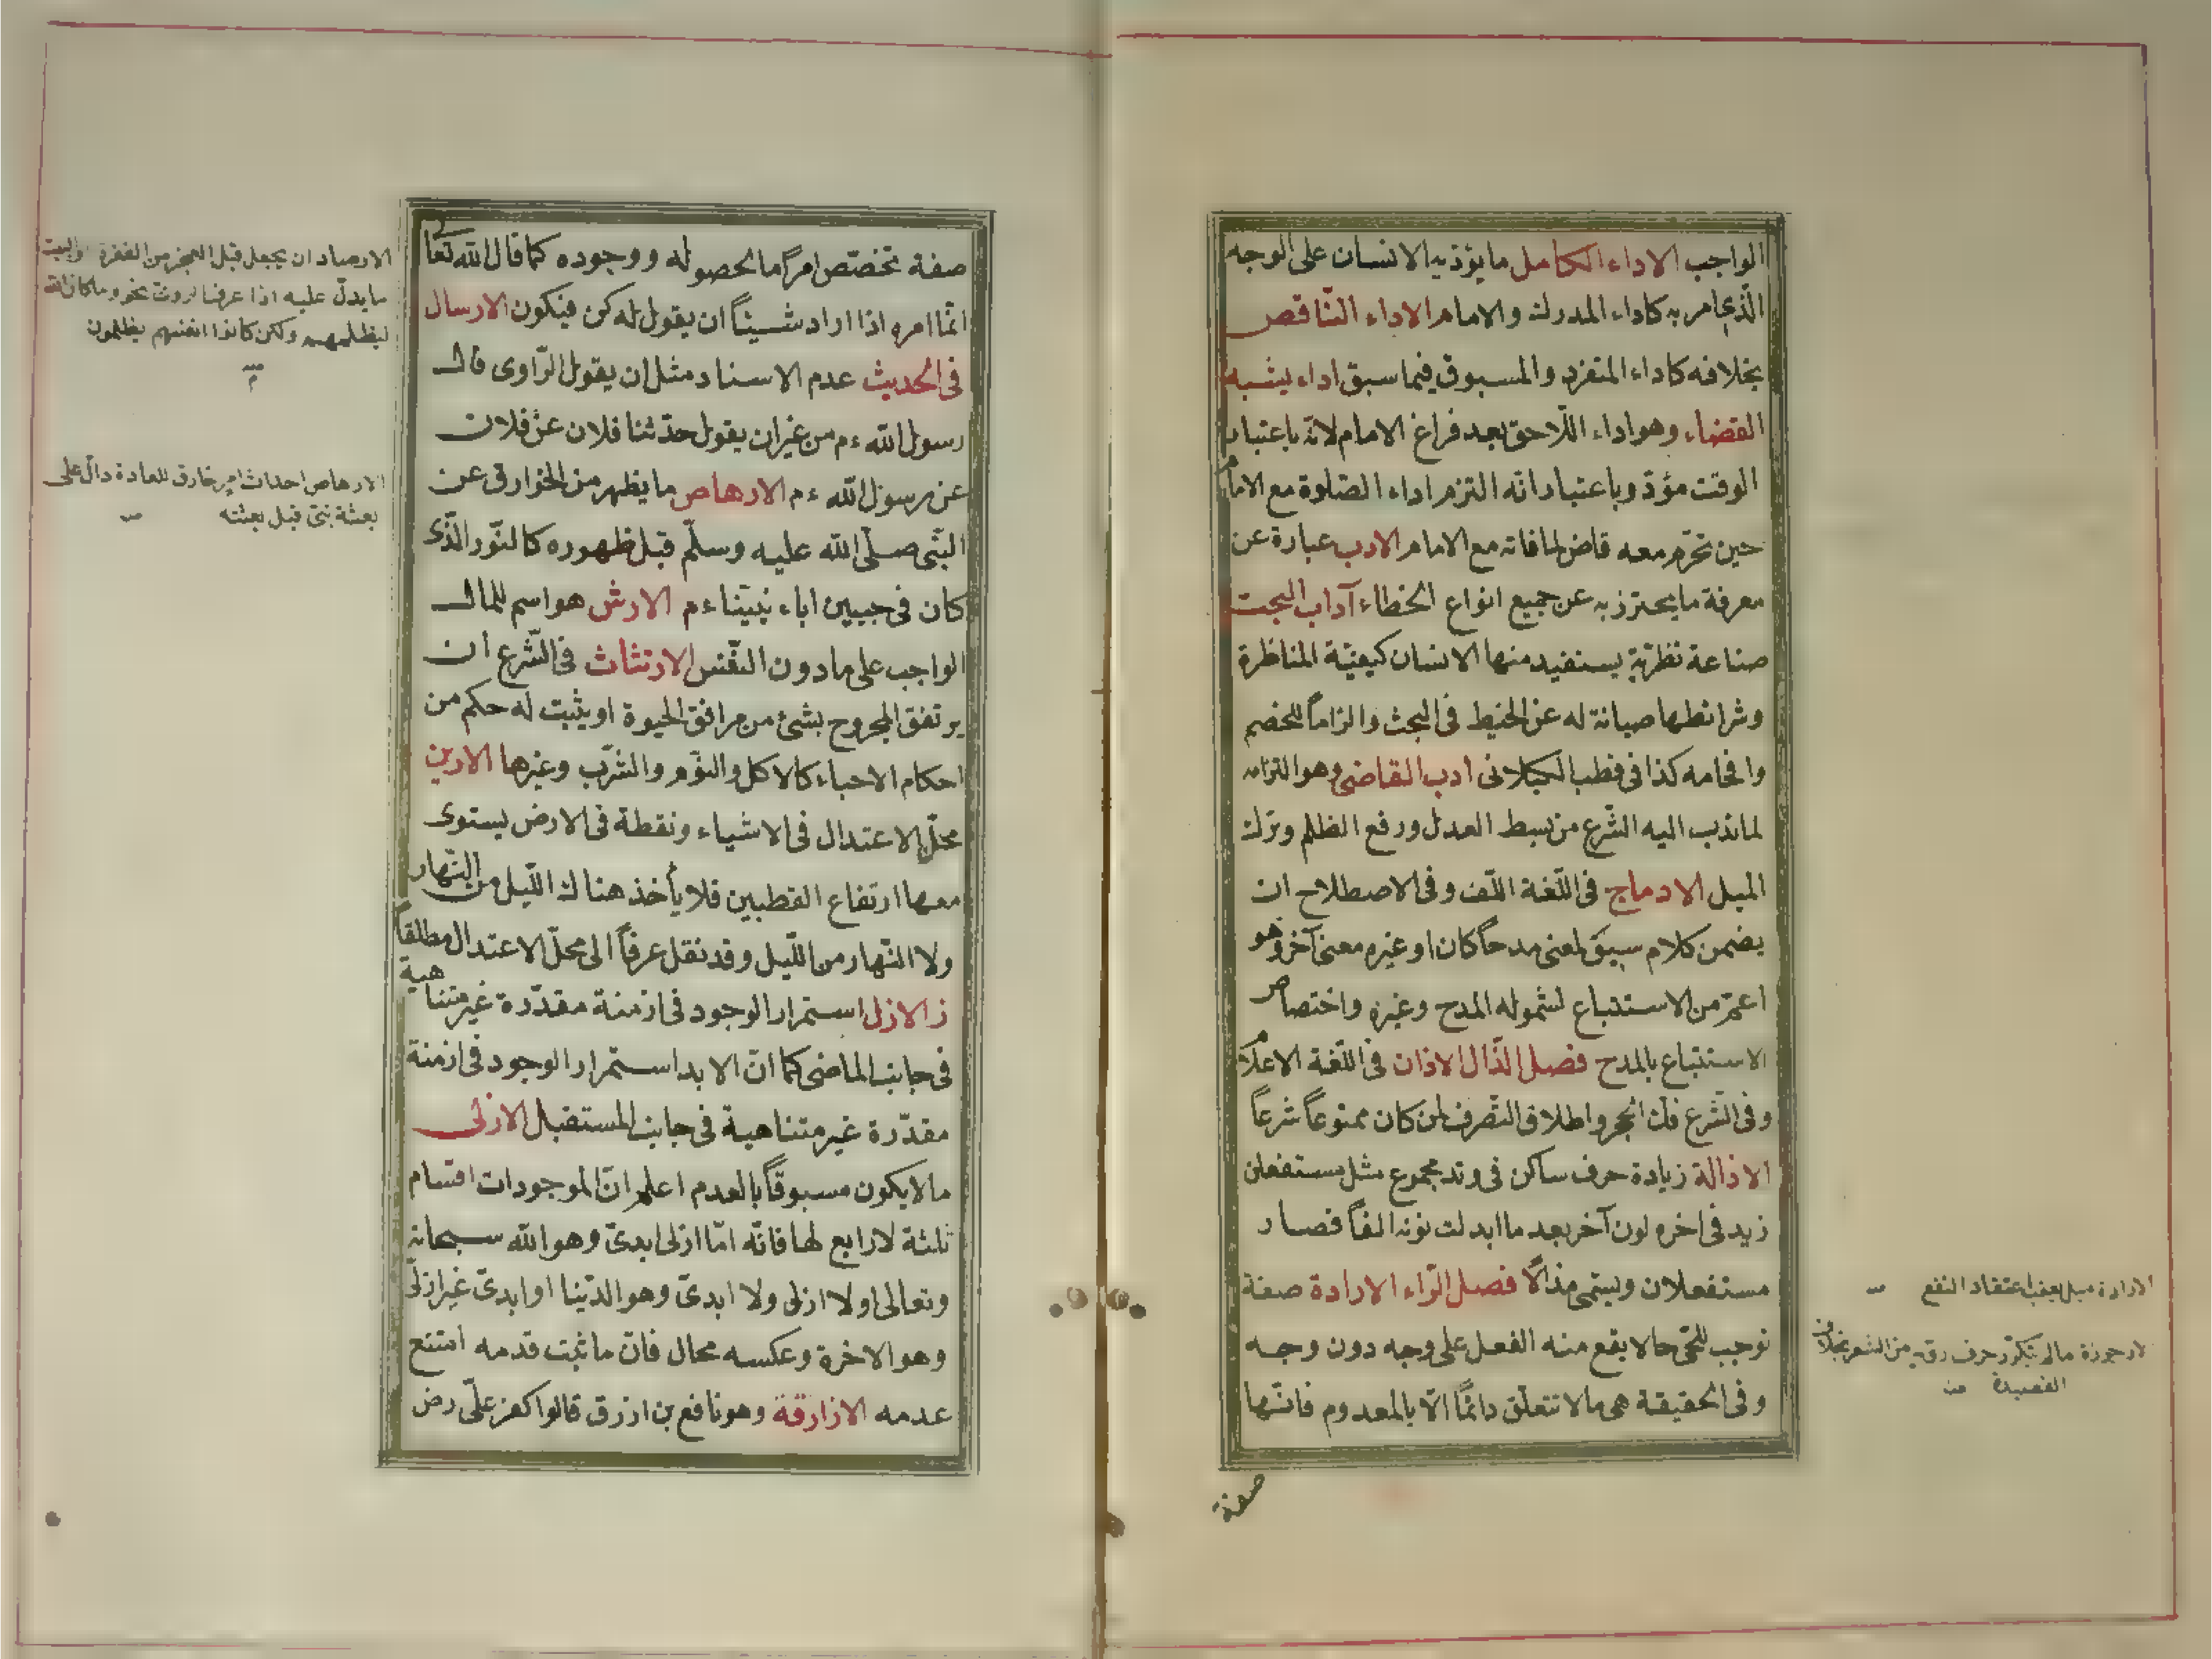 الواجب الاداء الكامل ما يؤذيه الانسان على الوجه
الّذى امر به كاداء المدرك والامام الاداء النّاقص
بخلافه كاداء المنفرد والمسبوق فيما سبق اداء يشبه
القضاء وهو اداء اللّاحق بعد فراغ الامام لانّه باعتبار
الوقت مؤدّ وباعتبار انّه التزم اداء الصّلوة مع الامام
حين تحرّم معه قاض لما فاته مع الامام الادب عبارة عن
معرفة ما يحترز به عن جميع انواع الخطاء آداب البحث
صناعة نظريّة يستفيد منها الانسان كيفيّة المناظرة
وشرائطها صيانة له عن الخبط فى البحث والزاماً للخصم
وافحامه كذا فى قطب الكيلانى ادب القاضى وهو التزامه
لما ندب اليه الشّرع من بسط العدل ورفع الظلم وترك
الميل الادماج فى اللّغة اللّف وفى الاصطلاح ان
يضمن كلام سيق لمعنى مدحاً كان او غيره معنى آخر وهو
اعمّ من الاستتباع لشموله المدح وغيره واختصاص
الاستتباع بالمدح فصل الذّال الاذان فى اللّغة الاعلام
وفى الشّرع فك الحجر واطلاق التّصرف لمن كان ممنوعاً شرعاً
الاذالة زيادة حرف ساكن فى وتد مجموع مثل مستفعلن
زيد فى اخره نون آخر بعد ما ابدلت نونه الفاً فصار
مستفعلان ويسمّى مذالاً فصل الرّاء الارادة صفة
توجب للحّى حالا يقع منه الفعل على وجه دون وجه
وفى الحقيقة هى ما لا تتعلّق دائماً الّا بالمعدوم فانّها
صفة
الارادة ميل يعقب اعتقاد النفع
الارجوزة ما لم يتكرّر حرف رويه من الشعر بخلاف
القصيدة
صفة تخصّص امراً ما لحصوله ووجوده كما قال الله تعا
انّما امره اذا اراد شيئاً ان يقول له كن فيكون الارسال
فى الحديث عدم الاسناد مثل ان يقول الرّاوى قال
رسول الله ءم من غير ان يقول حدّثنا فلان عن فلان
عن رسول الله ءم الارهاص ما يظهر من الخوارق عن
النّبى صلّى الله عليه وسلّم قبل ظهوره كالنّور الّذى
كان فى جبين اباء نبيّنا ءم الارش هو اسم للمال
الواجب على ما دون النّفس الارتثاث فى الشّرع ان
يرتفق المجروح بشئ من مرافق الحيوة او يثبت له حكم من
احكام الاحياء كالاكل والنّوم والشّرب وغيرها الارين
محلّ الاعتدال فى الاشياء ونقطة فى الارض يستوى
معها ارتفاع القطبين فلا يأخذ هناك اللّيل من النّهار
ولا النّهار من اللّيل وقد نقل عرفاً الى محلّ الاعتدال مطلقاً
ز الازل استمرار الوجود فى ازمنة مقدّرة غير متناهية
فى جانب الماضى كما انّ الابد استمرار الوجود فى ازمنة
مقدّرة غير متناهية فى جانب المستقبل الازلى
ما لا يكون مسبوقاً بالعدم اعلم انّ الموجودات اقسام
ثلثة لا رابع لها فانّه امّا ازلى ابدىّ وهو الله سبحانه
وتعالى او لا ازلى ولا ابدىّ وهو الدّنيا او ابدىّ غير ازلىّ
وهو الاخرة وعكسه محال فانّ ما ثبت قدمه امتنع
عدمه الازارقة وهو نافع بن ازرق قالوا كفر علىّ رض
الارصاد ان يجعل قبل العجز من الفقرة او البيت
ما يدلّ عليه اذا عرف الروىّ نحو وما كان الله
ليظلمهم ولكن كانوا انفسهم يظلمون
الارهاص احداث امر خارق للعادة دالّ على
بعثة نبىّ قبل بعثته